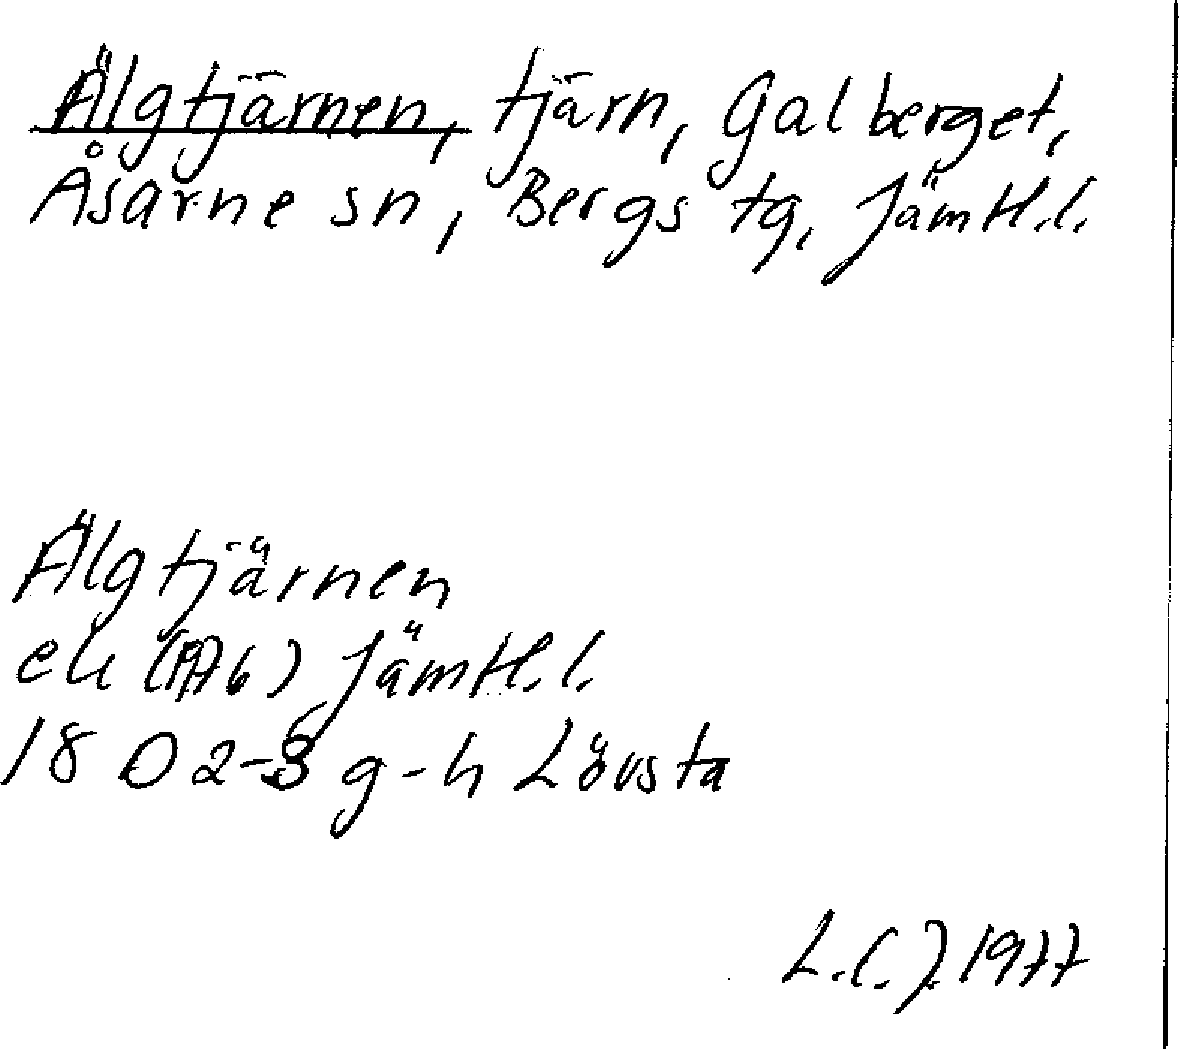 Älgtjärnen, tjärn, Galberget,
Åsarne sn, Bergs tg, Jämtl.l.
Älgtjärnen
ek (1976) Jämtl.l.
18 D 2-3 g-h Lövsta
L.C.J. 1977